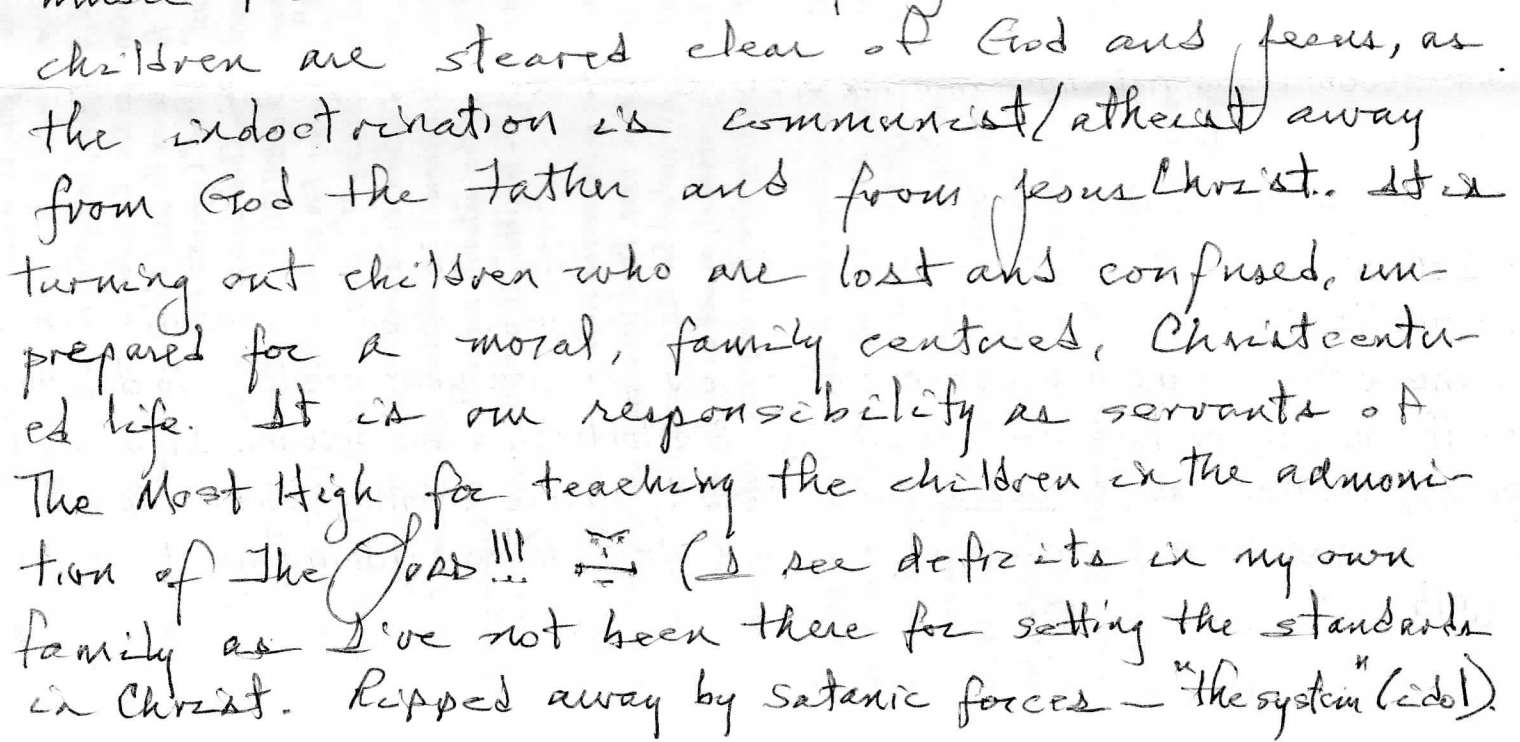 children are steared clear of God and Jesus, as
the indoctrination is communist/atheist away
from God the Father and from Jesus Christ. It is
turning out children who are lost and confused, un-
prepared for a moral, family centured, Christcentur-
ed life. It is our responsibility as servants of
The Most High for teaching the children in the admoni-
tion of The LORD!!! (I see deficits in my own
family as I've not been there for setting the standards
in Christ. Ripped away by satanic forces — "the system" (idol).